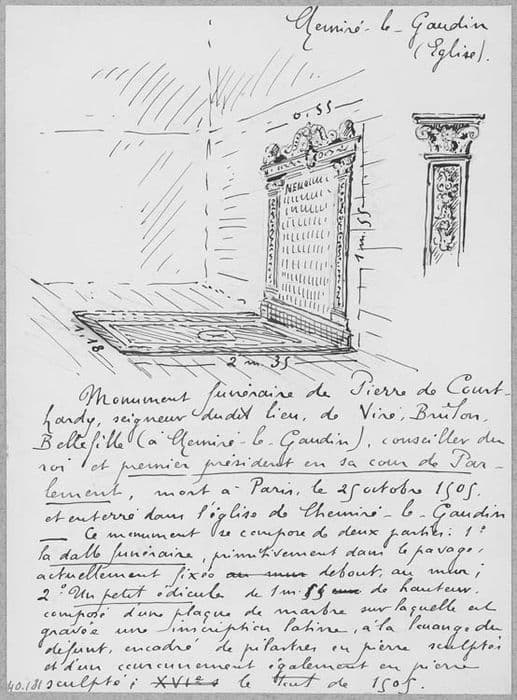 Chemiré-le-Gaudin
(Eglise).
0,55
MEMORIAE
1m.55
1,18
2m.35
Monument funéraire de Pierre de Court-
hardy, seigneur dudit lieu, de Viré, Brûlon,
Bellefille (à Chemiré-le-Gaudin), conseiller du
roi et premier président en sa cour de Par-
lement, mort à Paris, le 25 octobre 1505.
et enterré dans l'église de Chemiré-le-Gaudin
— Ce monument se compose de deux parties: 1º
la dalle funéraire, primitivement dans le pavage,
actuellement fixée au mur debout, au mur;
2º Un petit édicule de 1m.55 de hauteur.
composé d'une plaque de marbre sur laquelle est
gravée une inscription latine, à la louange du
défunt, encadré de pilastres en pierre sculptés
et d'un couronnement également en pierre
sculpté; XVIe s le tout de 1505.
40.181